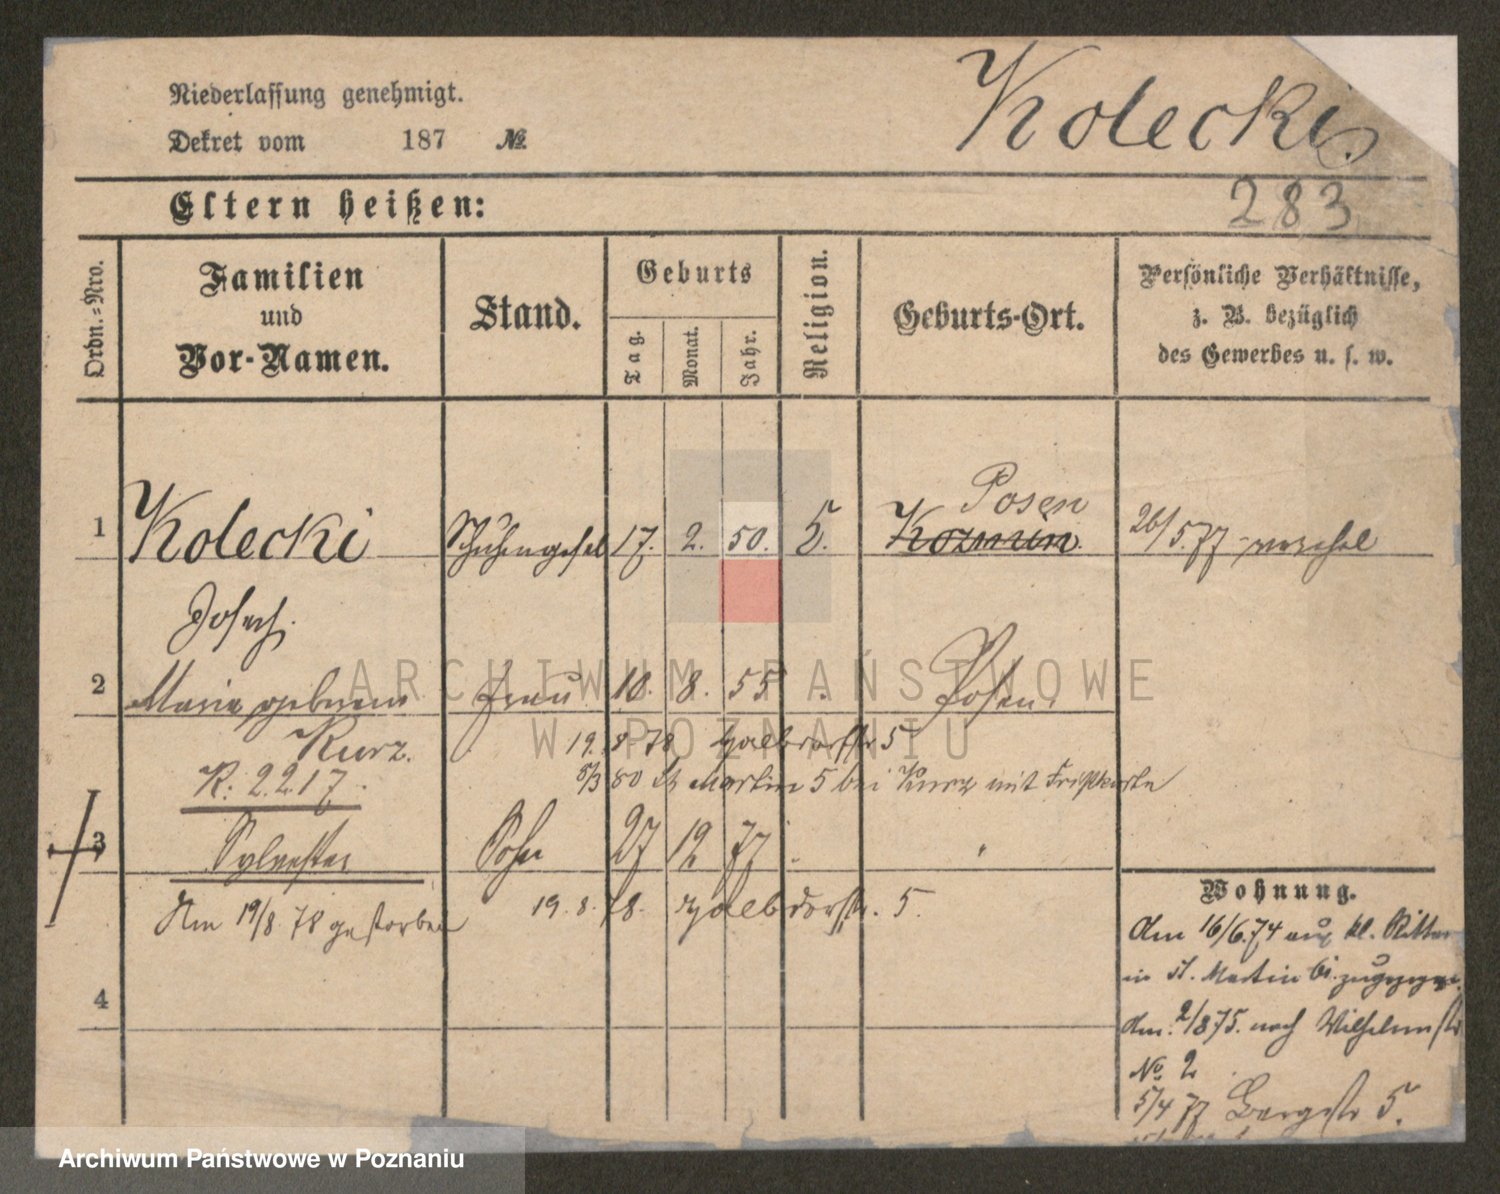 Niederlassung genehmigt.
Dekret vom 187 No.
Kolecki
283
Eltern heißen:
Ordn.=Nro.
Familien
und
Vor-Namen.
Stand.
Geburts
Tag.
Monat.
Jahr.
Religion.
Geburts-Ort.
Persönliche Verhältnisse,
z. B. bezüglich
des Gewerbes u. s. w.
Posen
1 Kolecki 17. 2. 50. Kozmin 26/5.77
Josef
2 Maria geborene Frau 18. 8. 55 Posen.
Kurz. 19. 8 78 5
R: 2.2.17 80 St Martin 5 bei Kurz mit
3 Sylvester Sohn 27 12 77
Am 19/8 78 gestorben 19. 8. 78. 5.
Wohnung.
Am 16/6.74 aus kl. Ritter
in St. Martin zugezogen.
2/8 75. nach Wilhelmstr
No 2
5/4 77 Bergstr 5.
4
ARCHIWUM PAŃSTWOWE
W POZNANIU
Archiwum Państwowe w Poznaniu